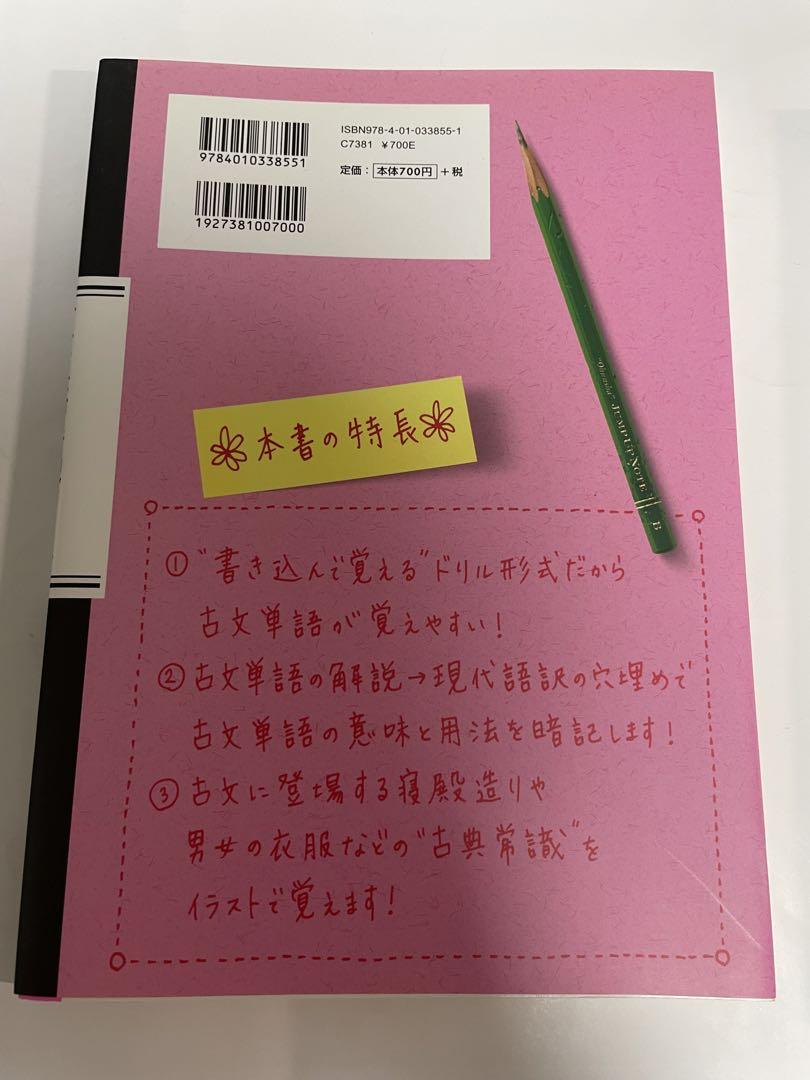 ISBN978-4-01-033855-1
C7381 ¥700E
定価：本体700円+税
9784010338551
1927381007000
JUMP UP NOTE
B
本書の特長
①"書き込んで覚える"ドリル形式だから
古文単語が覚えやすい！
②古文単語の解説→現代語訳の穴埋めで
古文単語の意味と用法を暗記します！
③古文に登場する寝殿造りや
男女の衣服などの"古典常識"を
イラストで覚えます！